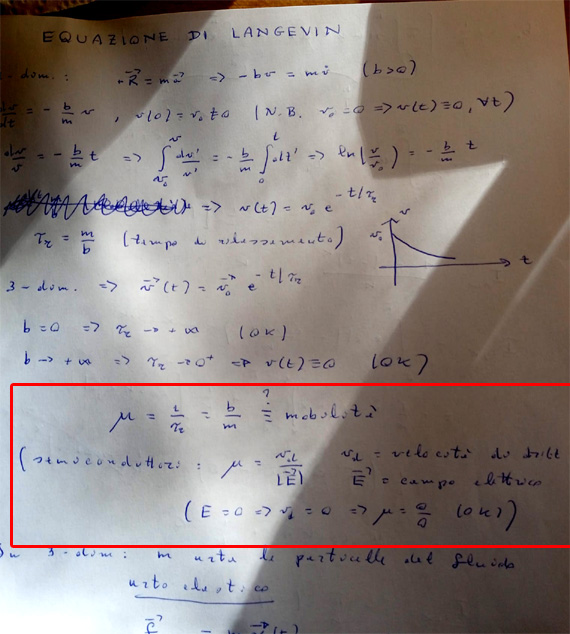 EQUAZIONE DI LANGEVIN
-dom.: R⃗ = m v̇⃗ => -bv = m v̇ (b>0)
dv/dt = - b/m v , v(0) = v₀ ≠ 0 (N.B. v₀ = 0 => v(t) ≡ 0, ∀t)
dv/v = - b/m t => ∫_{v₀}^{v} dv'/v' = - b/m ∫_{0}^{t} dt' => ln(v/v₀) = - b/m t
=> v(t) = v₀ e^{-t/τ_r}
τ_r = m/b (tempo di rilassamento)
v
v₀
t
3-dom. => v⃗(t) = v⃗₀ e^{-t/τ_r}
b=0 => τ_r -> +∞ (OK)
b -> +∞ => τ_r -> 0⁺ => v(t) ≡ 0 (OK)
?
μ = 1/τ_r = b/m ≡ mobilità
(semiconduttori: μ = v_d/|E⃗| v_d = velocità di drift
E⃗ = campo elettrico
(E=0 => v_d = 0 => μ = 0/0 (OK))
3-dom: m urta le particelle del fluido
urto elastico